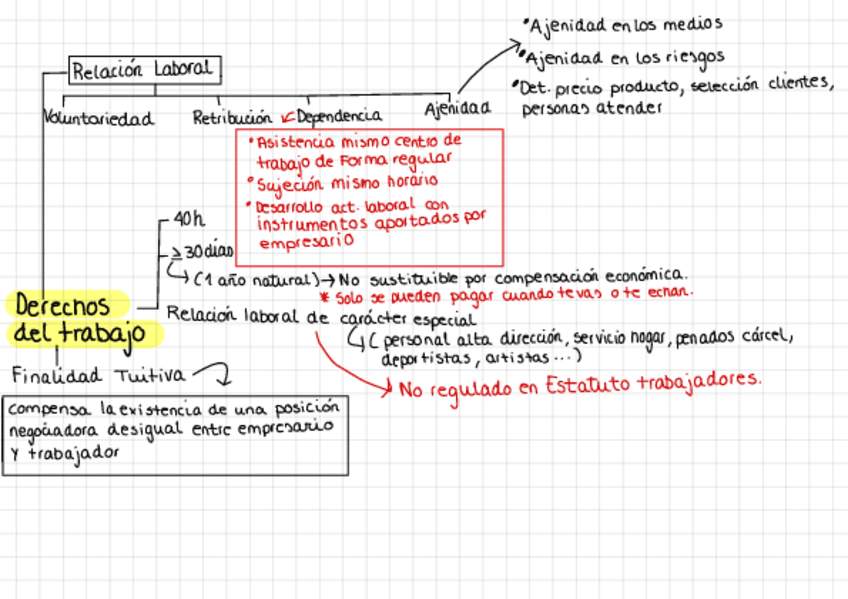 Relación Laboral
Voluntariedad
Retribución
Dependencia
Ajenidad
• Ajenidad en los medios
• Ajenidad en los riesgos
• Det. precio producto, selección clientes,
personas atender
• Asistencia mismo centro de
trabajo de Forma regular
• Sujeción mismo horario
• Desarrollo act. laboral con
instrumentos aportados por
empresario
Derechos
del trabajo
40h
≥30 días
(1 año natural) → No sustituible por compensación económica.
* Solo se pueden pagar cuando te vas o te echan.
Relación laboral de carácter especial
( personal alta dirección, servicio hogar, penados cárcel,
deportistas, artistas ...)
No regulado en Estatuto trabajadores.
Finalidad Tuitiva
compensa la existencia de una posición
negociadora desigual entre empresario
Y trabajador